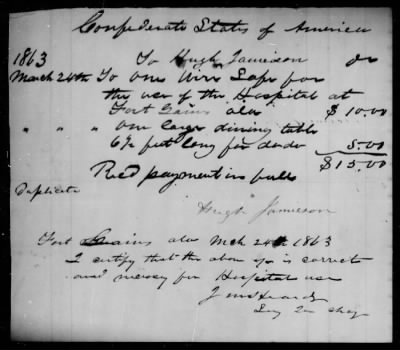 Confederate States of America
1863 To Hugh Jamieson Dr
March 24th To one Wire Safe for
the use of the Hospital at
Fort Gains Ala $10.00
" " " one large dining table
6½ feet long for do do 5.00
$15.00
Recd payment in full
Duplicate
Hugh Jamieson
Fort Gains Ala Mch 24th 1863
I certify that the above is correct
and necessary for Hospital use